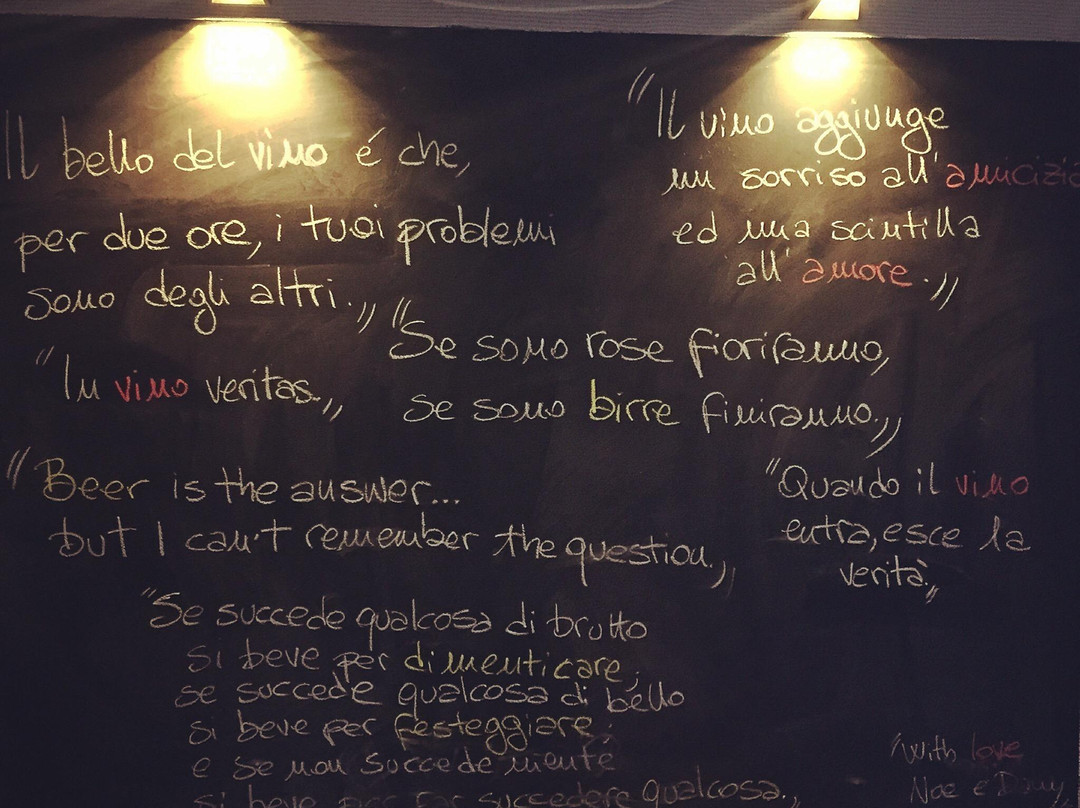 Il bello del vino é che,
per due ore, i tuoi problemi
sono degli altri.„
"Il vino aggiunge
un sorriso all'amicizia
ed una scintilla
all'amore.„
"In vino veritas.„
"Se sono rose fioriranno,
se sono birre finiranno.„
"Beer is the answer...
but I can't remember the question.„
"Quando il vino
entra, esce la
verità.„
"Se succede qualcosa di brutto
si beve per dimenticare;
se succede qualcosa di bello
si beve per festeggiare;
e se non succede niente
si beve per far succedere qualcosa.„
"With love
Noe e Dany